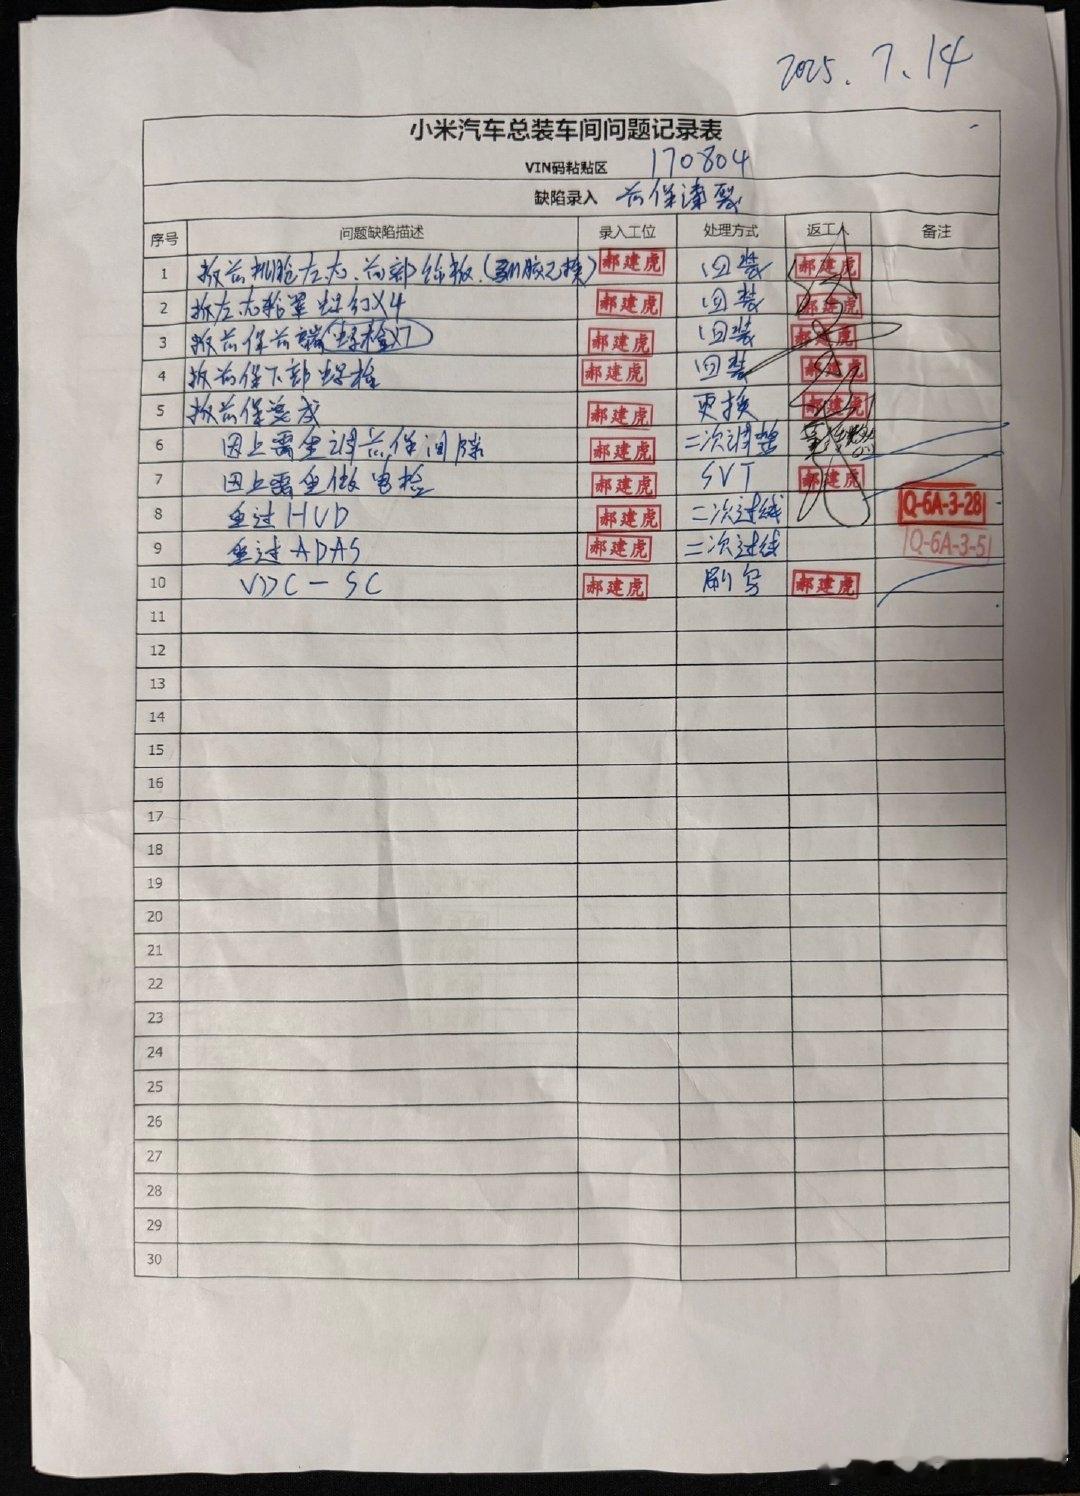 2025.7.14
小米汽车总装车间问题记录表
VIN码粘贴区 170804
缺陷录入 前保漆裂
序号 问题缺陷描述 录入工位 处理方式 返工人 备注
1 拆前机舱左右、前部饰板( 郝建虎 回装 郝建虎
2 拆左右轮罩螺钉X4 郝建虎 回装 郝建虎
3 拆前保前端螺栓X7 郝建虎 回装 郝建虎
4 拆前保下部螺栓 郝建虎 回装 郝建虎
5 拆前保总成 郝建虎 更换 郝建虎
6 因上需重调前保间隙 郝建虎 二次调整
7 因上需重做电检 郝建虎 SVT 郝建虎
8 重过HUD 郝建虎 二次过线 Q-6A-3-28
9 重过ADAS 郝建虎 二次过线 Q-6A-3-5
10 VDC-SC 郝建虎 刷写 郝建虎
11
12
13
14
15
16
17
18
19
20
21
22
23
24
25
26
27
28
29
30